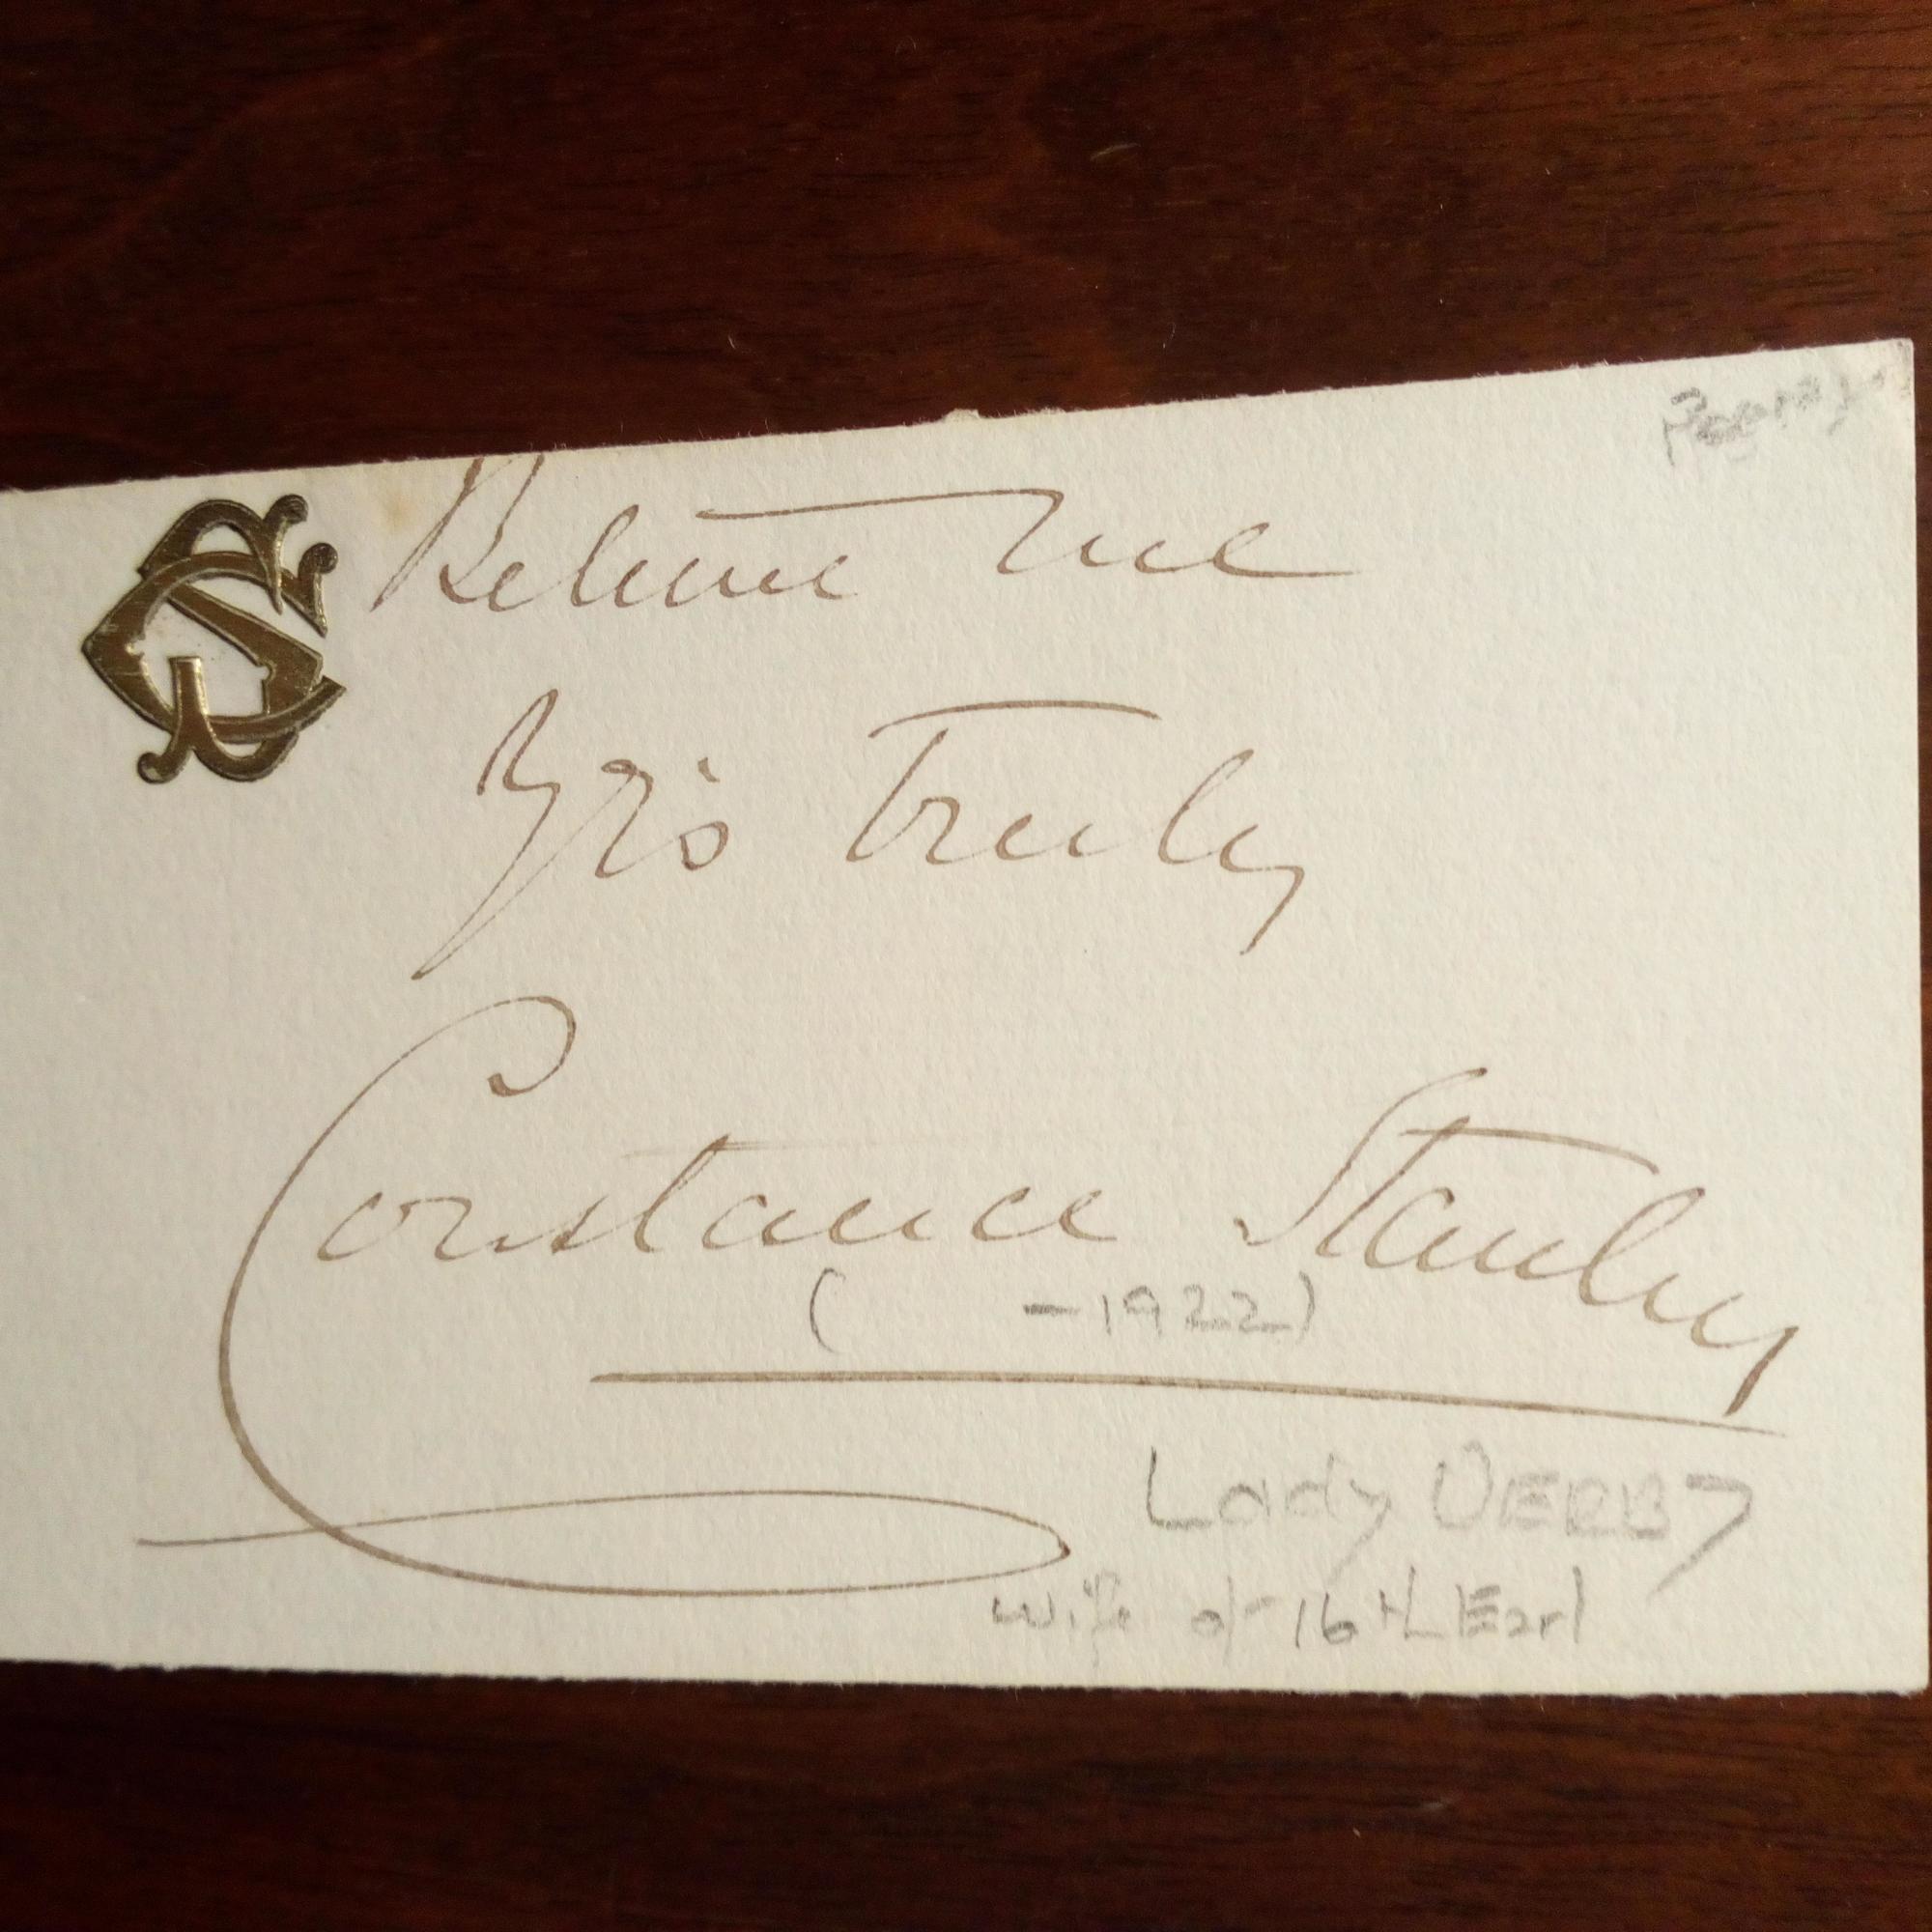 CS
Believe me
Yrs Truly
Constance Stanley
( -1922)
Lady DERBY
wife of 16th Earl